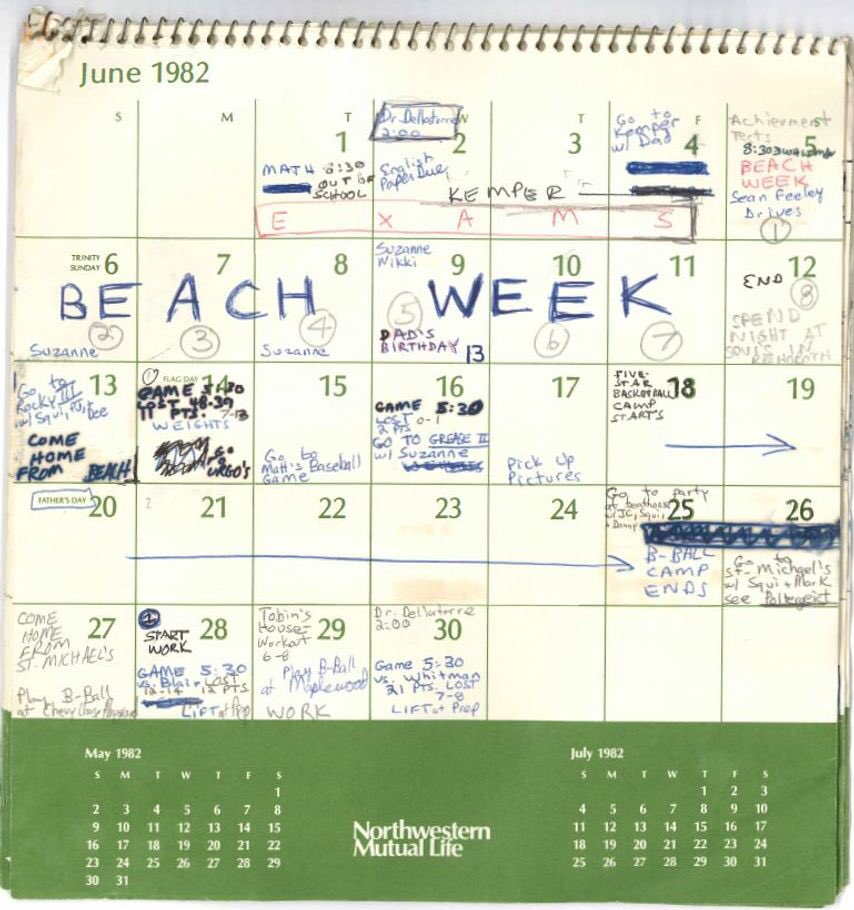 June 1982
S M T W T F S
1
MATH 8:30
OUT OF
SCHOOL
Dr. Dellatorre
2:00
2
English
Paper Due
3
KEMPER
Go to
Kemper
w/ Dad
4
E X A M S
Achievement
Tests
5
8:30
BEACH
WEEK
Sean Feeley
Drives
1
TRINITY
SUNDAY 6
7
8
Suzanne
Nikki
9
10
11
12
BEACH WEEK
END
2
3
4
5
6
7
8
Suzanne
Suzanne
DAD'S
BIRTHDAY
13
SPEND
NIGHT AT
SQUI'S IN
REHOBOTH
13
Go to
Rocky III
w/ Squi, PJ,
Dee
COME
HOME
FROM BEACH
FLAG DAY
14
GAME 5:30
LOST 48-39
11 PTS. 7-13
WEIGHTS
GO
URGO'S
15
Go to
Matt's Baseball
Game
16
GAME 5:30
LOST 0-1
2 PTS
GO TO GREASE II
w/ Suzanne
17
Pick Up
Pictures
18
FIVE-
STAR
BASKETBALL
CAMP
STARTS
19
FATHER'S DAY
20
21
22
23
24
Go to party
at boathouse
w/ JC, Squi,
25
B-BALL
CAMP
ENDS
26
Go to
St. Michael's
w/ Squi + Mark
see Poltergeist
COME
HOME
FROM
ST. MICHAEL'S
27
Play B-Ball
at Chevy Chase
28
START
WORK
GAME 5:30
vs. Blair LOST
12-14 12 PTS.
LIFT at Prep
Tobin's
House-
Workout
6-8
29
Play B-Ball
at Maplewood
WORK
Dr. Dellatorre
2:00
30
Game 5:30
vs. Whitman
21 PTS. LOST
7-8
LIFT at Prep
May 1982
S M T W T F S
1
2 3 4 5 6 7 8
9 10 11 12 13 14 15
16 17 18 19 20 21 22
23 24 25 26 27 28 29
30 31
Northwestern
Mutual Life
July 1982
S M T W T F S
1 2 3
4 5 6 7 8 9 10
11 12 13 14 15 16 17
18 19 20 21 22 23 24
25 26 27 28 29 30 31